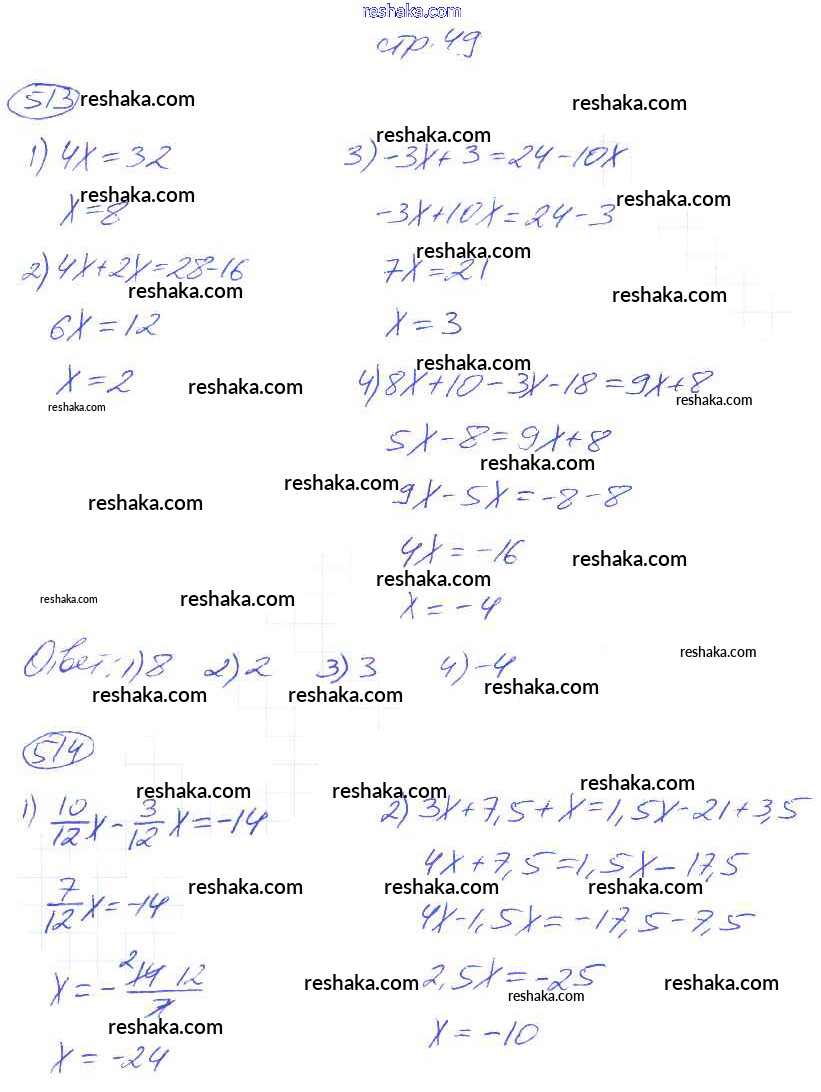 reshaka.com
стр. 49
513 reshaka.com
reshaka.com
reshaka.com
1) 4x = 32
x = 8
reshaka.com
2) 4x + 2x = 28 - 16
reshaka.com
6x = 12
x = 2
reshaka.com
reshaka.com
reshaka.com
3) -3x + 3 = 24 - 10x
reshaka.com
-3x + 10x = 24 - 3
reshaka.com
7x = 21
reshaka.com
x = 3
reshaka.com
4) 8x + 10 - 3x - 18 = 9x + 8
reshaka.com
5x - 8 = 9x + 8
reshaka.com
reshaka.com
9x - 5x = -8 - 8
4x = -16
reshaka.com
reshaka.com
x = -4
reshaka.com
reshaka.com
Ответ: 1) 8 2) 2 3) 3 4) -4
reshaka.com
reshaka.com
reshaka.com
reshaka.com
514
reshaka.com
reshaka.com
reshaka.com
1) 10/12 x - 3/12 x = -14
7/12 x = -14
reshaka.com
x = - 2 14 12 / 7
reshaka.com
x = -24
2) 3x + 7,5 + x = 1,5x - 21 + 3,5
4x + 7,5 = 1,5x - 17,5
reshaka.com
reshaka.com
4x - 1,5x = -17,5 - 7,5
reshaka.com
2,5x = -25
reshaka.com
reshaka.com
x = -10